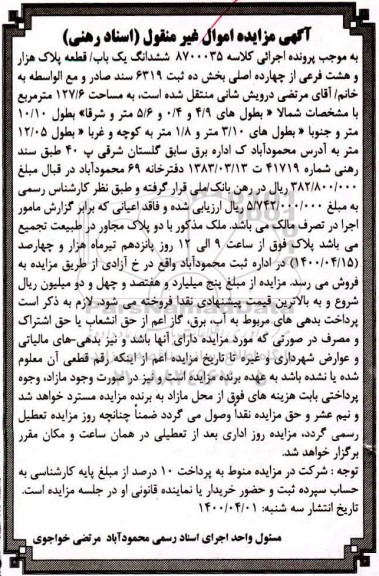 آگهی مزایده اموال غیر منقول (اسناد رهنی)
به موجب پرونده اجرائی کلاسه ۸۷۰۰۰۳۵ ششدانگ یک باب/ قطعه پلاک هزار
و هشت فرعی از چهارده اصلی بخش ده ثبت ۶۳۱۹ سند صادر و مع الواسطه به
خانم/ آقای مرتضی درویش شانی منتقل شده است، به مساحت ۱۲۷/۶ مترمربع
با مشخصات شمالا « بطول های ۴/۹ و ۰/۴ و ۵/۶ متر و شرقا» بطول ۱۰/۱۰
متر و جنوبا « بطول های ۳/۱۰ متر و ۱/۸ متر به کوچه و غربا « بطول ۱۲/۰۵
متر به آدرس محمودآباد ک اداره برق سابق گلستان شرقی پ ۴۰ طبق سند
رهنی شماره ۴۱۷۱۹ ت ۱۳۸۳/۰۳/۱۳ دفترخانه ۶۹ محمودآباد در قبال مبلغ
۳۸۲/۸۰۰/۰۰۰ ریال در رهن بانک/ملی قرار گرفته و طبق نظر کارشناس رسمی
به مبلغ ۵/۷۴۲/۰۰۰/۰۰۰ ریال ارزیابی شده و فاقد اعیانی که برابر گزارش مامور
اجرا در تصرف مالک می باشد. ملک مذکور با دو پلاک مجاور در طبیعت تجمیع
می باشد پلاک فوق از ساعت ۹ الی ۱۲ روز پانزدهم تیرماه هزار و چهارصد
(۱۴۰۰/۰۴/۱۵) در اداره ثبت محمودآباد واقع در خ آزادی از طریق مزایده به
فروش می رسد. مزایده از مبلغ پنج میلیارد و هفتصد و چهل و دو میلیون ریال
شروع و به بالاترین قیمت پیشنهادی نقدا فروخته می شود، لازم به ذکر است
پرداخت بدهی های مربوط به آب، برق، گاز اعم از حق انشعاب یا حق اشتراک
و مصرف در صورتی که مورد مزایده دارای آنها باشد و نیز بدهی‌های مالیاتی
و عوارض شهرداری و غیره تا تاریخ مزایده اعم از اینکه رقم قطعی آن معلوم
شده یا نشده باشد به عهده برنده مزایده است و نیز در صورت وجود مازاد، وجوه
پرداختی بابت هزینه های فوق از محل مازاد به برنده مزایده مسترد خواهد شد
و نیم عشر و حق مزایده نقداً وصول می گردد ضمناً چنانچه روز مزایده تعطیل
رسمی گردد، مزایده روز اداری بعد از تعطیلی در همان ساعت و مکان مقرر
برگزار خواهد شد.
توجه : شرکت در مزایده منوط به پرداخت ۱۰ درصد از مبلغ پایه کارشناسی به
حساب سپرده ثبت و حضور خریدار یا نماینده قانونی او در جلسه مزایده است.
تاریخ انتشار سه شنبه: ۱۴۰۰/۰۴/۰۱
مسئول واحد اجرای اسناد رسمی محمودآباد مرتضی خواجوی